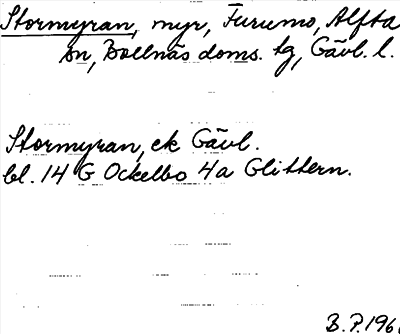 Stormyran, myr, Furumo, Alfta
sn, Bollnäs doms. tg, Gävl. l.
Stormyran, ek Gävl.
bl. 14 G Ockelbo 4a Glittern.
B.P.196